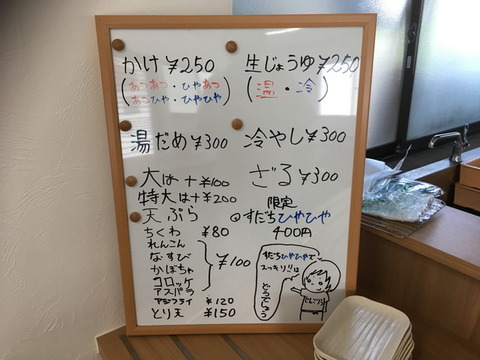 かけ ¥250
(あつあつ・ひやあつ
あつひや・ひやひや)
生じょうゆ ¥250
(温・冷)
湯だめ ¥300
冷やし ¥300
大は+¥100
特大は+¥200
ざる ¥300
天ぷら
ちくわ ¥80
れんこん
なすび
かぼちゃ
コロッケ
アスパラ
}¥100
アジフライ ¥120
とり天 ¥150
限定
◎すだちひやひや
400円
すだちひやひやで
スッキリ!!は
どうでしょう